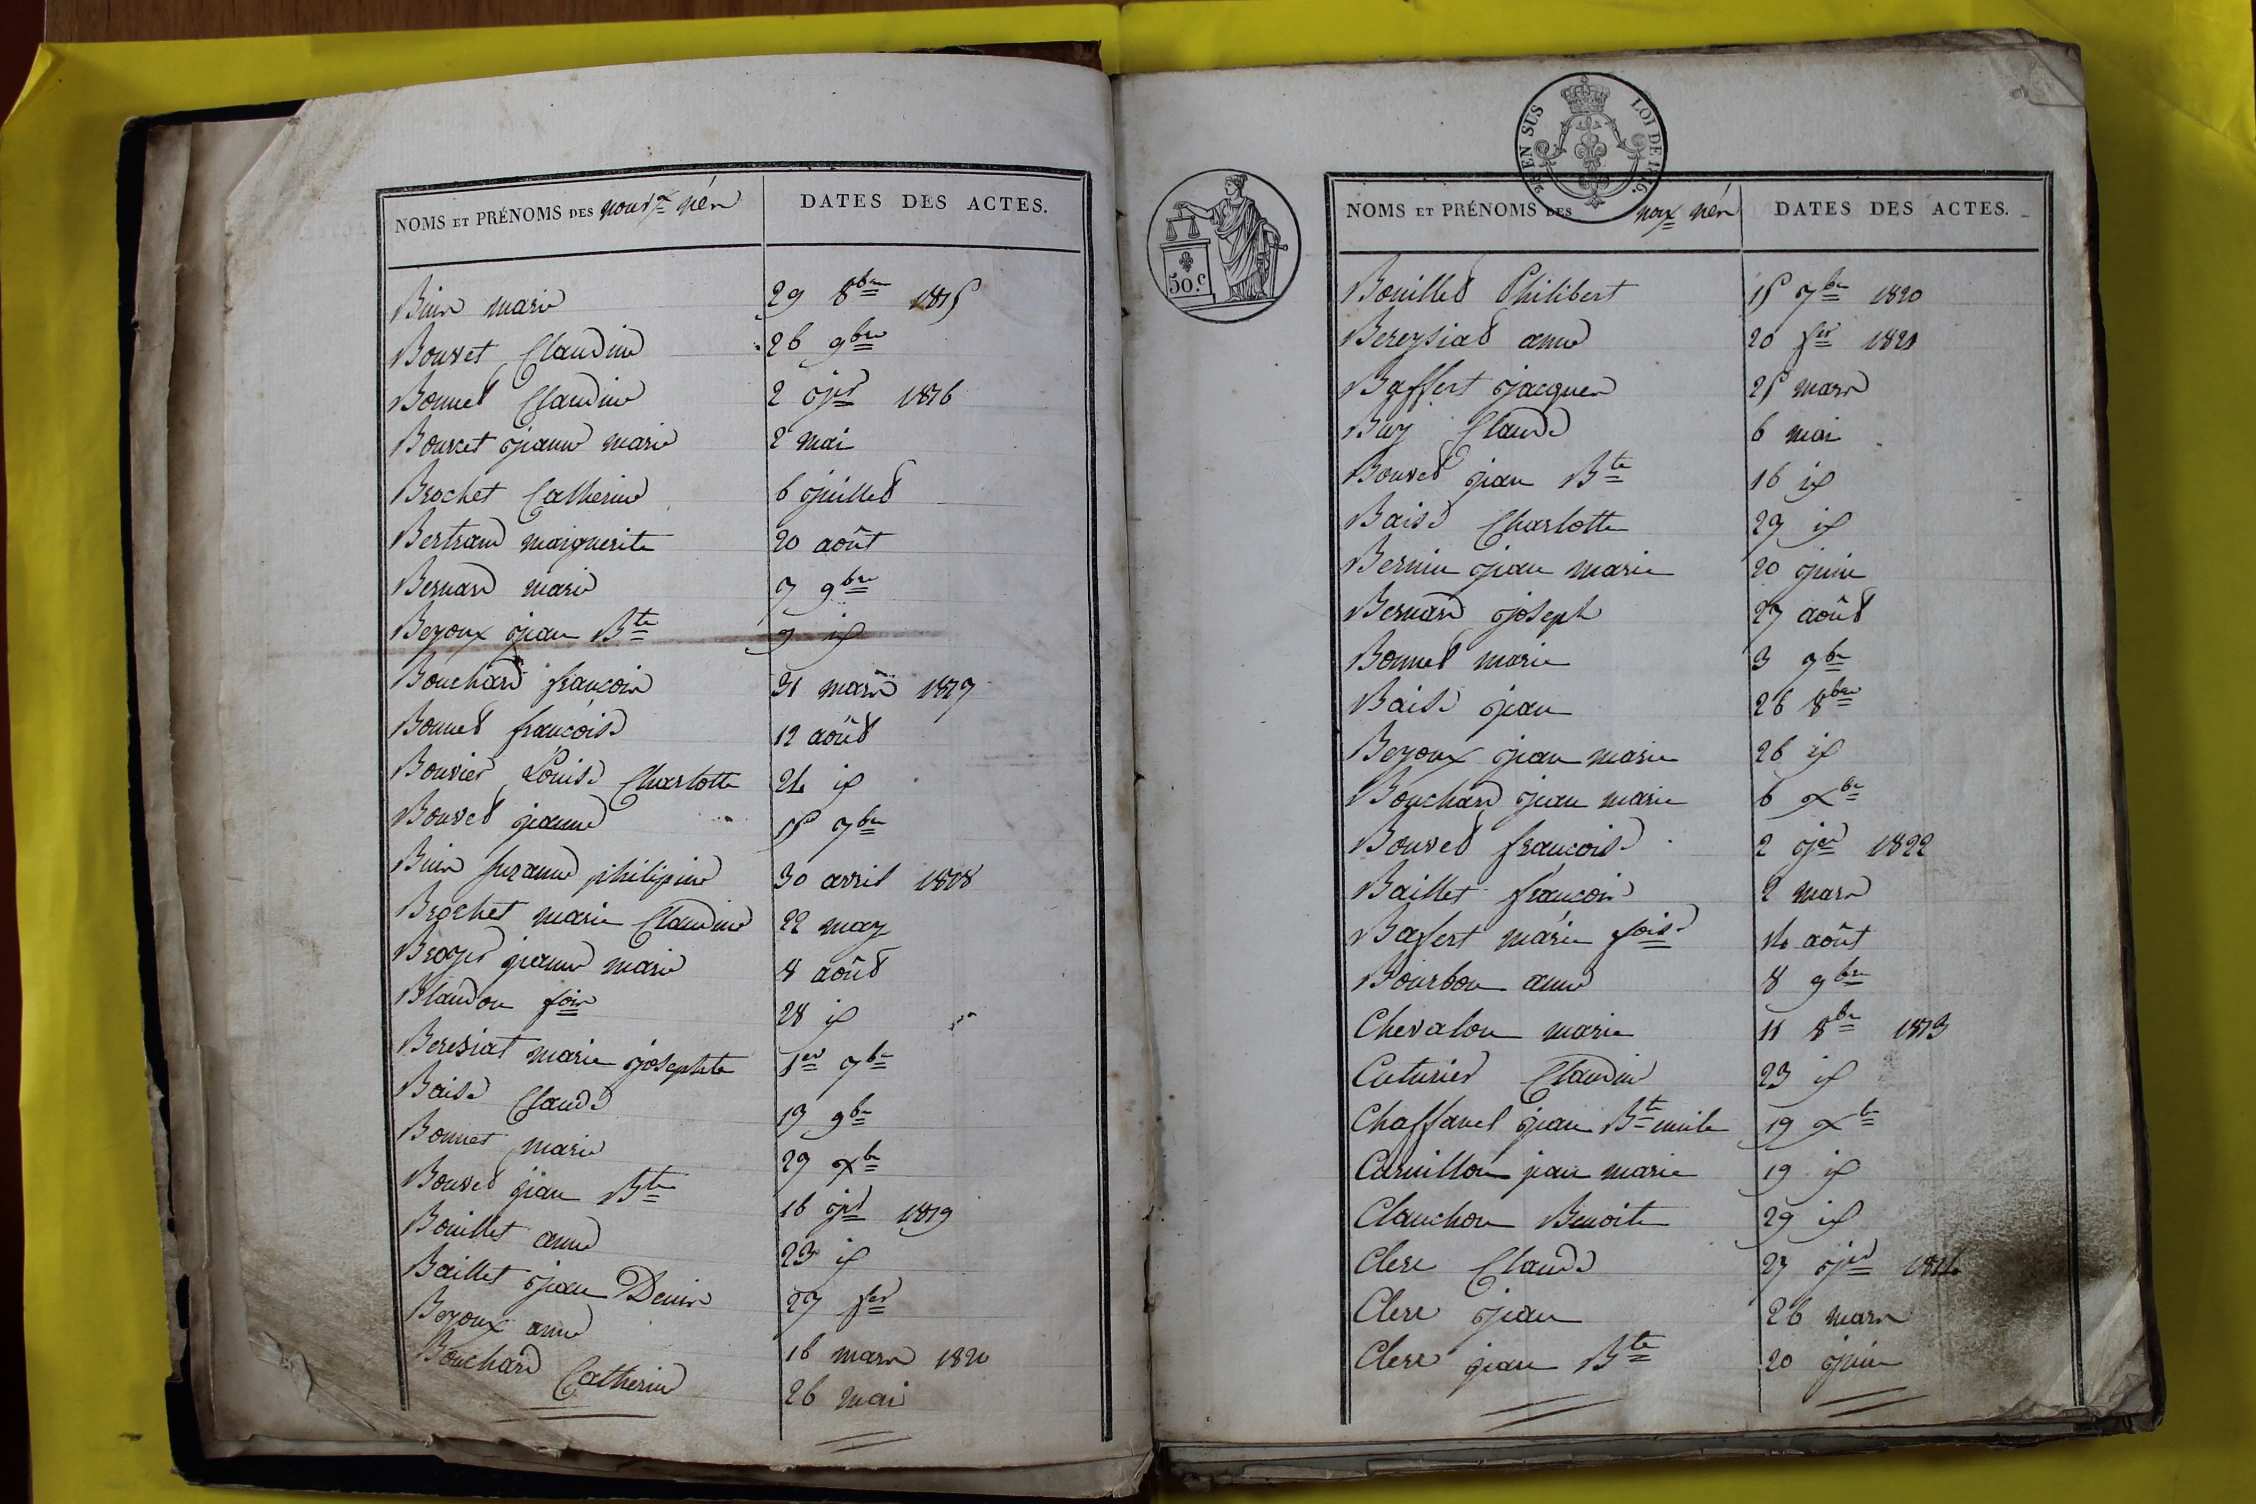 NOMS ET PRÉNOMS DES nouvx nés
DATES DES ACTES.
Buin marie 29 8bre 1815
Bouvet Claudine 26 9bre
Bonnet Claudine 2 jer 1816
Bourcet jeanne marie 2 mai
Brochet Catherine 6 juillet
Bertrand marguerite 20 août
Bernard marie 7 9bre
Bezoux jean Bte 9 id
Bouchard françois 31 mars 1817
Bonnet françoise 12 août
Bouvier Louise Charlotte 24 id
Bouvet jeanne 15 7bre
Buin suzanne philipine 30 avril 1818
Brochet marie Claudine 22 may
Broyer jeanne marie 8 août
Blandon fois 28 id
Beresiat marie josephte 1er 7bre
Baise Claude 19 9bre
Bonnet marie 29 xbre
Bouvet jean Bte 16 jer 1819
Bouillet anne 23 id
Baillet jean Denis 27 fer
Bezoux anne 16 mars 1820
Bouchard Catherine 26 mai
25 EN SUS LOI DE 1816.
50.c
NOMS ET PRÉNOMS DES noux nés
DATES DES ACTES.
Bouillet Philibert 15 7bre 1820
Bereysiat anne 20 fer 1821
Baffert jacques 25 mars
Buy Claude 6 mai
Bouvet jean Bte 16 id
Baise Charlotte 29 id
Bernin jean marie 20 juin
Bernard joseph 27 août
Bonnet marie 3 7bre
Baise jean 26 8bre
Bezoux jean marie 26 id
Bouchard jean marie 6 xbre
Bouvet françoise 2 jer 1822
Baillet françois 2 mars
Bafert marie foise 14 août
Bourbon anne 8 9bre
Chevalon marie 11 8bre 1813
Cuturier Claudine 23 id
Chaffanel jean Bte emile 19 xbre
Carvillon jean marie 19 id
Clauchon Benoite 29 id
Clerc Claude 27 jer 1814
Clerc jean 26 mars
Clerc jean Bte 20 juin